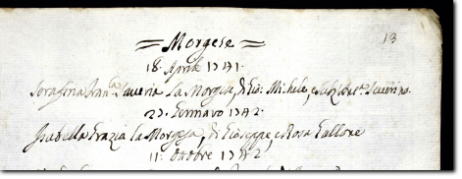 = Morgese =
13
18 Aprile 1741.
Serafina Fran.ca Saveria la Morgesa, di Gio: Michele, e
27. Gennaro 1742.
Isabella Grazia la Morgesa, di Gioseppe, e Rosa Gallone
11: Ottobre 1742,